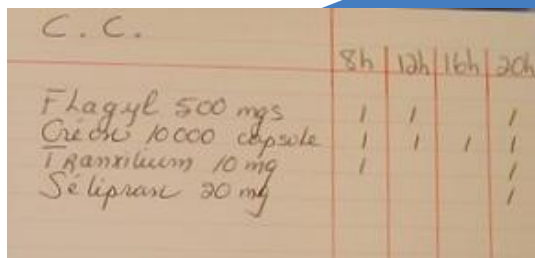 C. C.
8h 12h 16h 20h
Flagyl 500 mgs 1 1 1
Créon 10000 capsule 1 1 1 1
Tranxilium 10 mg 1 1
Sélipran 20 mg 1